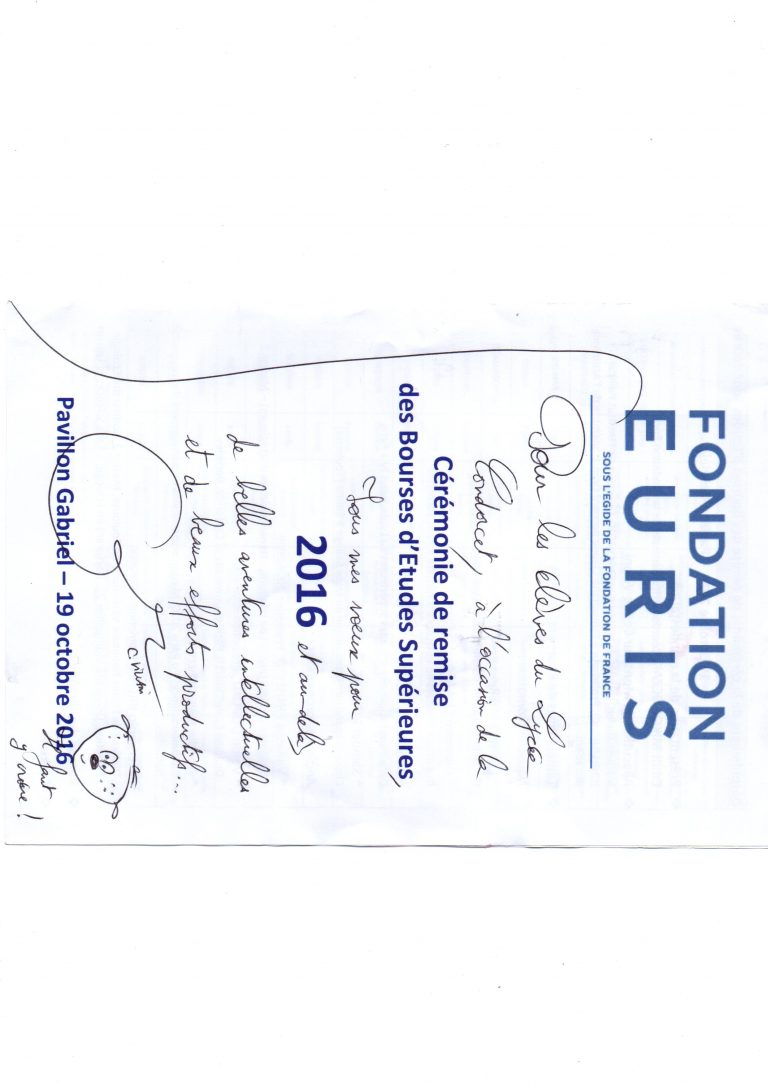 FONDATION
EURIS
SOUS L'EGIDE DE LA FONDATION DE FRANCE
Pour les élèves du Lycée
Condorcet, à l'occasion de la
Cérémonie de remise
des Bourses d'Etudes Supérieures,
Tous mes vœux pour
2016 et au-delà
de belles aventures intellectuelles
et de beaux efforts productifs...
C. Villani
Pavillon Gabriel – 19 octobre 2016
Il faut
y croire !